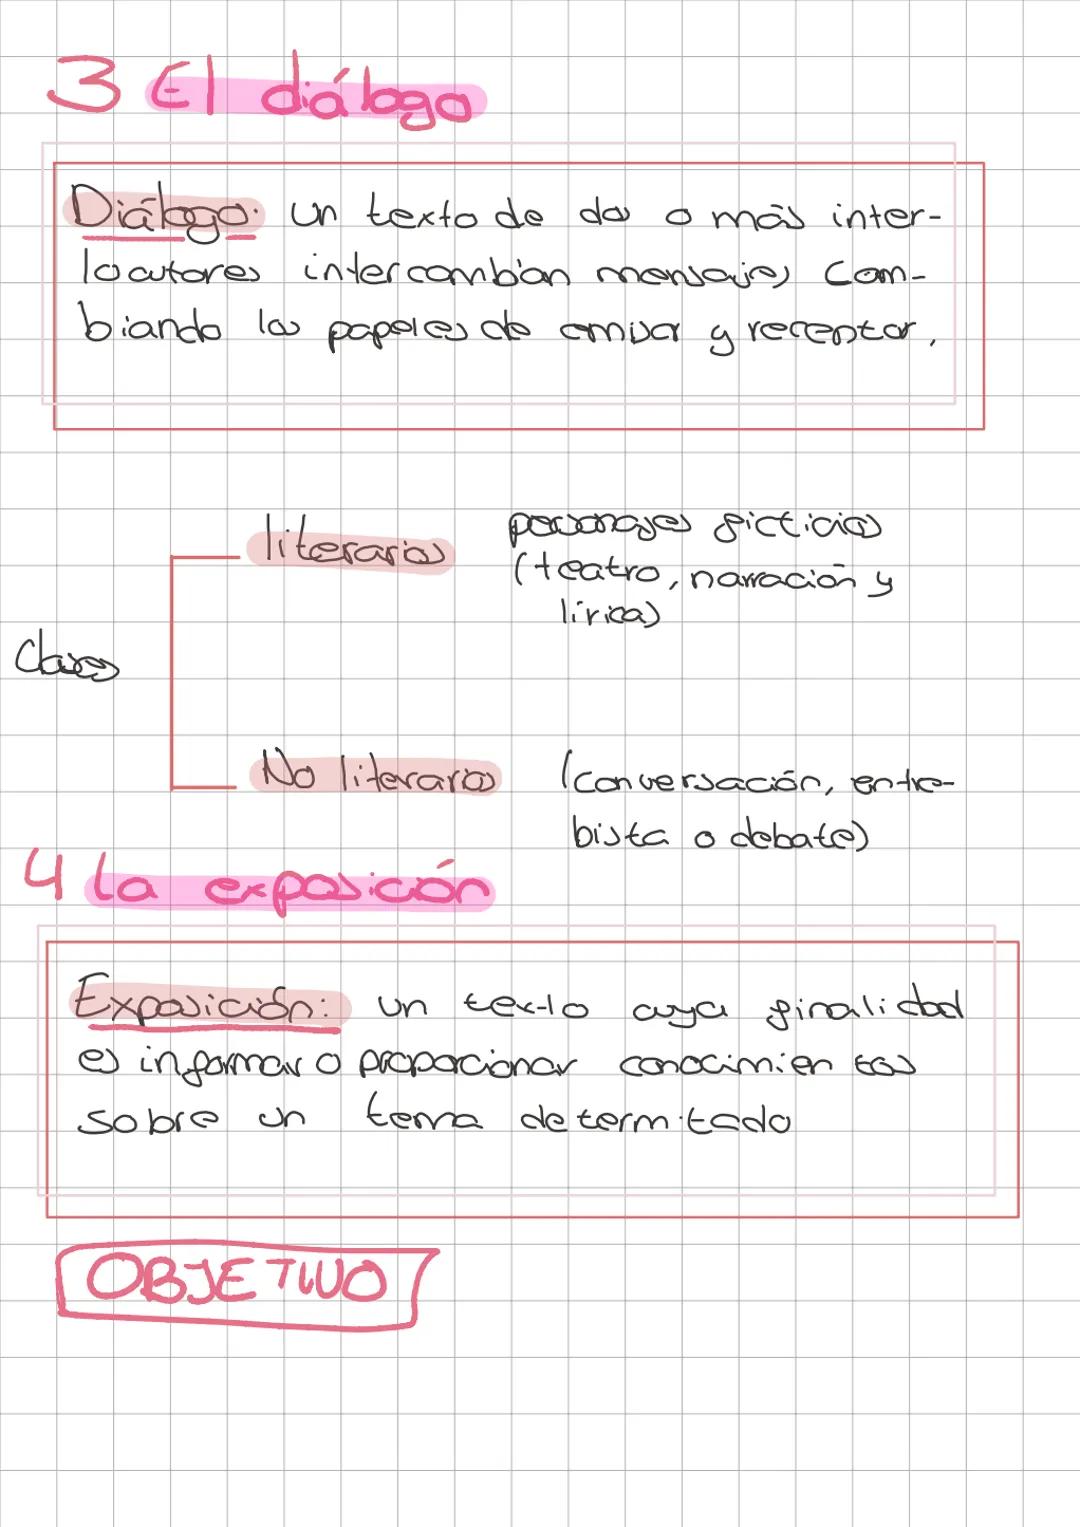 3 El diálogo
Diálogo: un texto de dos o más inter-
locutores intercambian mensajes Cam-
biando los papeles de emisor y receptor.
literarios personajes ficticios
(teatro, narración y
lírica)
Clases
No literarios (conversación, entre-
bista o debate)
4 La exposición
Exposición: un texto cuya finalidad
es informar o proporcionar conocimientos
sobre un tema determitado
OBJETIVO